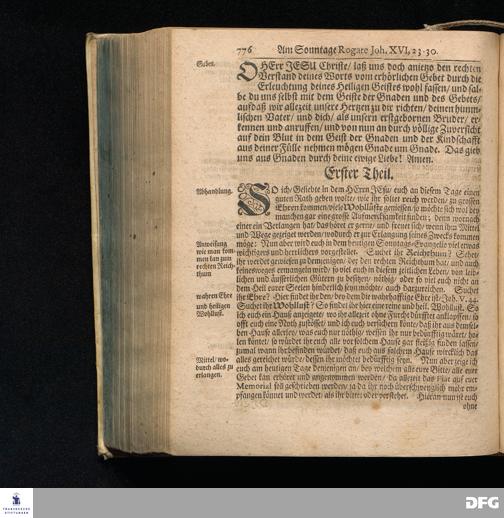 776 Am Sonntage Rogate Joh. XVI, 23-30.
Gebet.
O HErr JESU Christe/ laß uns doch anietzo den rechten
Verstand deines Worts vom erhörlichen Gebet durch die
Erleuchtung deines Heiligen Geistes wohl fassen/ und sal-
be du uns selbst mit dem Geiste der Gnaden und des Gebets/
aufdaß wir allezeit unsere Hertzen zu dir richten/ deinen himm-
lischen Vater/ und dich/ als unsern erstgebornen Bruder/ er-
kennen und anruffen/ und von nun an durch völlige Zuversicht
auf dein Blut in dem Geist der Gnaden und der Kindschafft
aus deiner Fülle nehmen mögen Gnade um Gnade. Das gieb
uns aus Gnaden durch deine ewige Liebe! Amen.
Erster Theil.
Abhandlung.
SO ich/ Geliebte in dem HErrn JEsu/ euch an diesem Tage einen
guten Rath geben wolte/ wie ihr soltet reich werden/ zu grossen
Ehren kommen/ viele Wohllüste geniessen/ so möchte sich wol bey
manchen gar eine grosse Aufmercksamkeit finden; denn wornach
einer ein Verlangen hat/ das höret er gerne/ und freuet sich/ wenn ihm Mittel
und Wege gezeiget werden/ wodurch er zur Erlangung seines Zwecks kommen
möge: Nun aber wird euch in dem heutigen Sonntags-Evangelio viel etwas
wichtigers und herrlichers vorgestellet. Suchet ihr Reichthum? Sehet/
Anweisung
wie man kom-
men kan zum
rechten Reich-
thum
ihr werdet gewiesen zu demjenigen/ bey den rechten Reichthum hat/ und auch
keinesweges ermangeln wird/ so viel euch in diesem zeitlichen Leben/ von leib-
lichen und äusserlichen Gütern zu besitzen/ nöthig/ oder so viel euch nicht an
dem Heil eurer Seelen hinderlich seyn möchte/ auch darzureichen. Suchet
wahren Ehre
und heiligen
Wohllust.
ihr Ehre? Hier findet ihr den/ bey dem die wahrhafftige Ehre ist/ Joh. V. 44.
Suchet ihr Wohllust? So findet ihr hier eine reine und heil. Wohllust. So
ich euch ein Hauß anzeigete/ wo ihr allezeit ohne Furcht dürfftet anklopffen/ so
offt euch eine Noth zustösset/ und ich euch versichern könte/ daß ihr aus demsel-
ben Hause allerley/ was euch nur nöthig/ wessen ihr nur bedürfftig wäret/ ho-
len köntet/ so würdet ihr euch alle vor solchem Hause gar fleißig finden lassen/
zumal wann ihr befinden würdet/ daß euch aus solchem Hause wircklich das
alles gereichet würde/ dessen ihr möchtet bedürfftig seyn. Nun aber zeige ich
Mittel/ wo-
durch alles zu
erlangen.
euch am heutigen Tage denienigen an/ bey welchem alle eure Bitte/ alle euer
Gebet kan erhöret und angenommen werden/ da allezeit das Fiat auf euer
Memorial soll geschrieben werden/ ja da ihr noch überschwenglich mehr em-
pfangen könnet und werdet/ als ihr bittet oder verstehet. Hieran nun ist euch
ohne
FRANCKESCHE
STIFTUNGEN
DFG